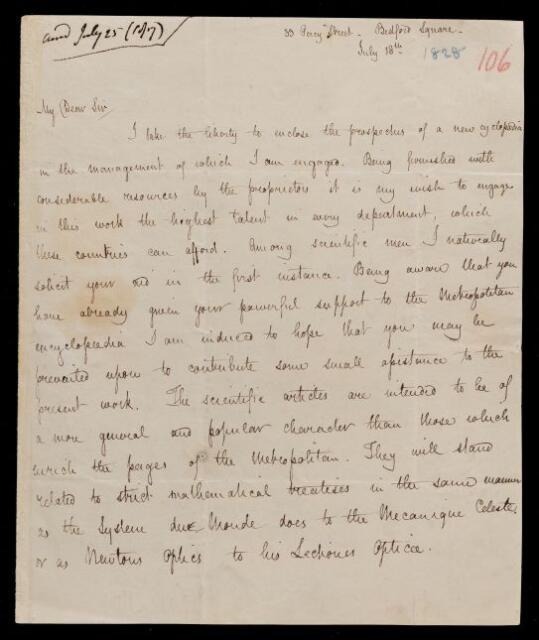 and July 25 (1817)
33 Percy Street. Bedford Square.
July 18th 1828 106
My Dear Sir
I take the liberty to enclose the prospectus of a new cyclopædia
in the management of which I am engaged. Being furnished with
considerable resources by the proprietors it is my wish to engage
in this work the highest talent in every department, which
these countries can afford. Among scientific men I naturally
solicit your aid in the first instance. Being aware that you
have already given your powerful support to the Metropolitan
encyclopædia I am induced to hope that you may be
prevailed upon to contribute some small assistance to the
present work. The scientific articles are intended to be of
a more general and popular character than those which
enrich the pages of the Metropolitan. They will stand
related to strict mathematical treatises in the same manner
as the System du Monde does to the Mecanique Celeste,
or as Newtons Optics to his Lectiones Opticæ.